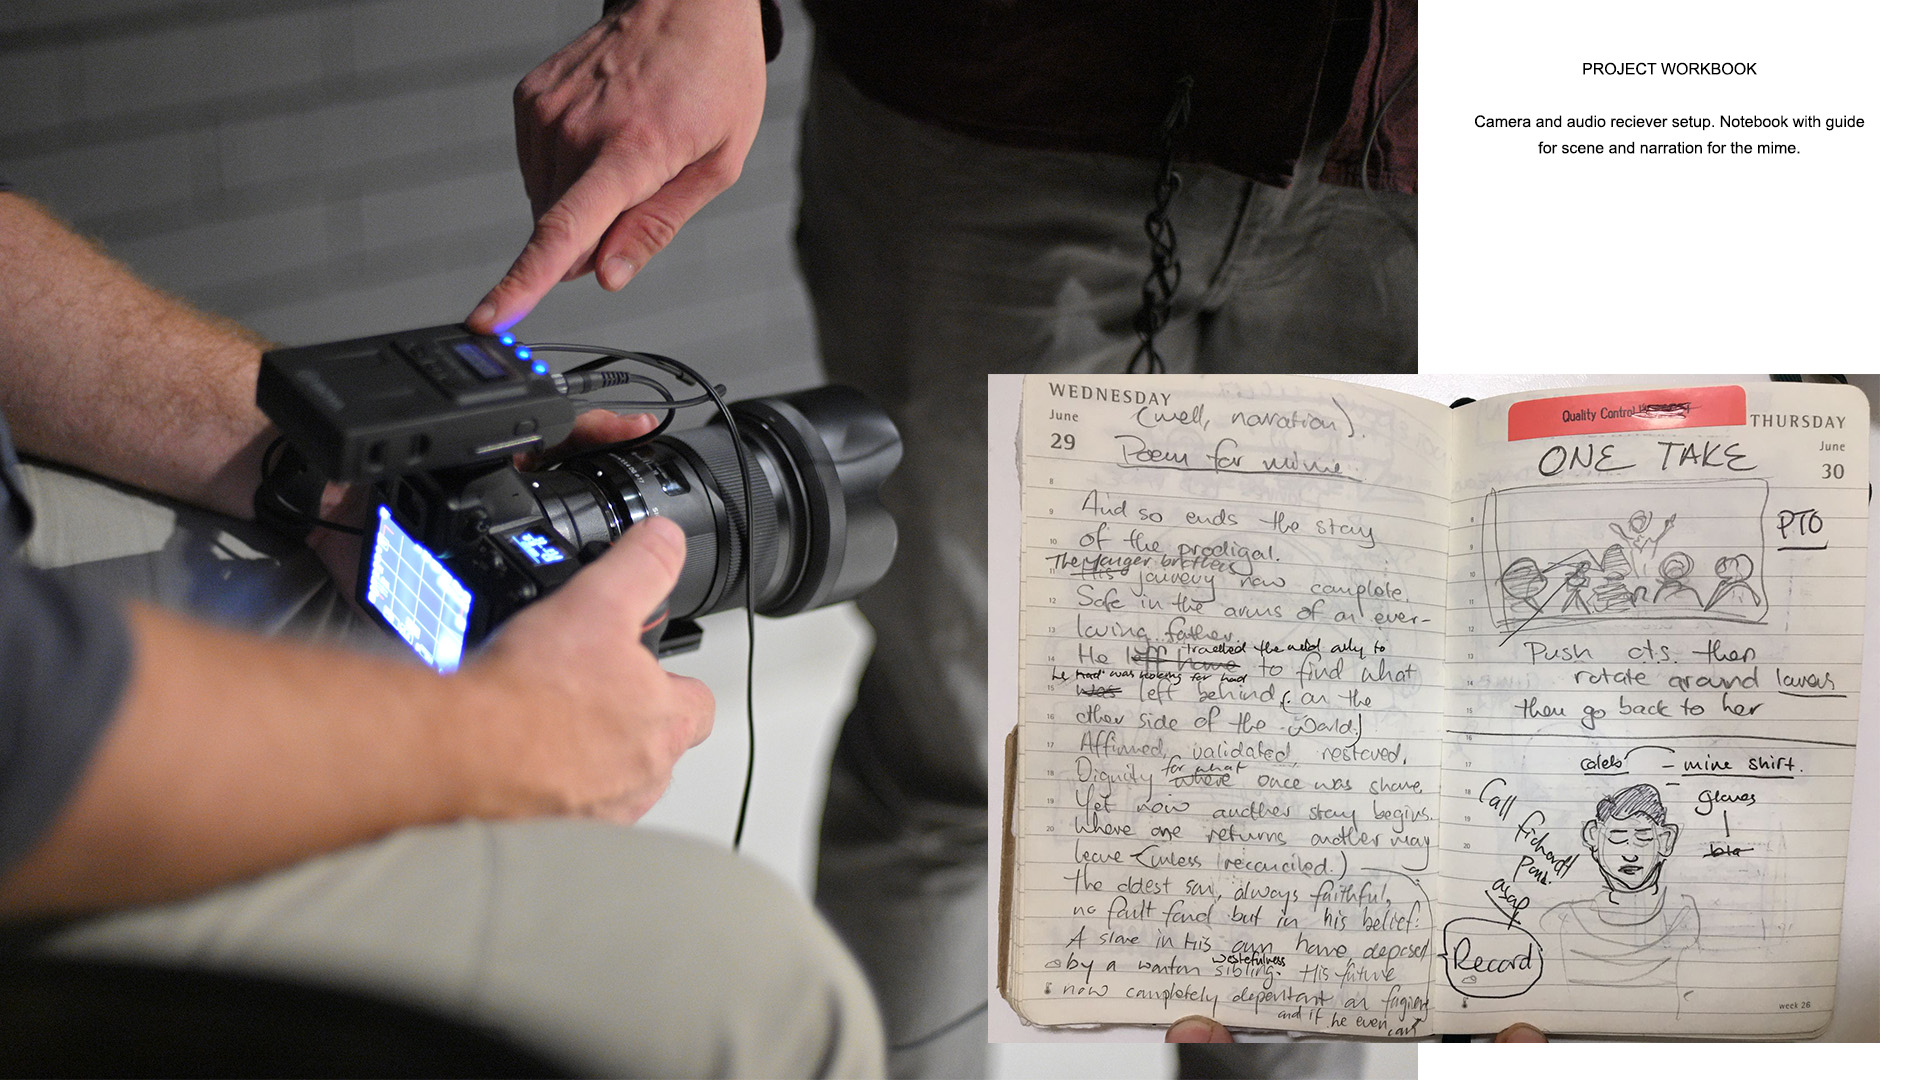 PROJECT WORKBOOK
Camera and audio reciever setup. Notebook with guide
for scene and narration for the mime.
WEDNESDAY
June
29
(well, narration).
Poem for mime.
8
And so ends the story
9
of the prodigal.
10
The younger brothers
11
His journey now complete.
12
Safe in the arms of an ever-
13
loving father.
travelled the world only to
14
He left home to find what
he had was looking for had
15
was left behind, (on the
16
other side of the world.)
17
Affirmed, validated, restored.
for what
18
Dignity where once was shame.
19
Yet now another story begins.
20
Where one returns another may
leave (unless reconciled.)
The oldest son, always faithful,
no fault found but in his belief:
A slave in his own home, deposed
wastefulness
by a wanton sibling. His future
now completely dependant on
and if he even can't
Quality Control
THURSDAY
June
30
ONE TAKE
PTO
8
9
10
11
12
13
Push o.t.s. then
14
rotate around lovers
15
then go back to her
16
17
caleb - mime shirt.
18
gloves
19
20
Call
Pond.
asap
Record
week 26